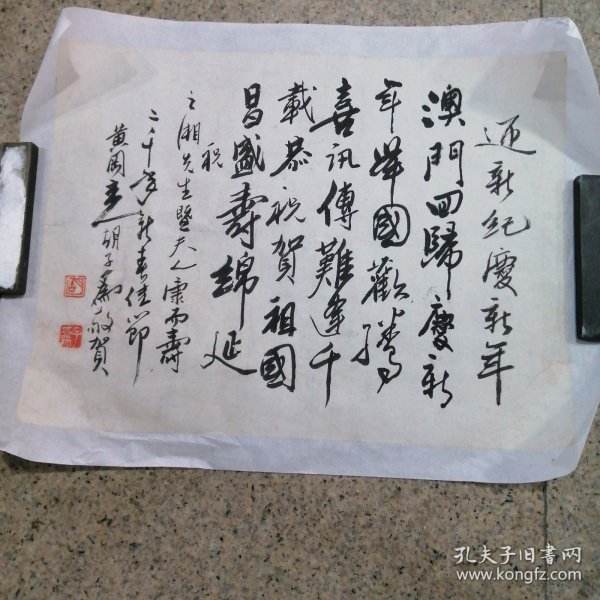 迎新紀慶新年
澳門回歸慶新
年舉國歡騰
喜訊傳難逢千
載恭祝賀祖國
昌盛壽綿延
祝
之湘先生暨夫人康而壽
二千年新春佳節
黄岡胡子敬賀
孔夫子旧书网
www.kongfz.com